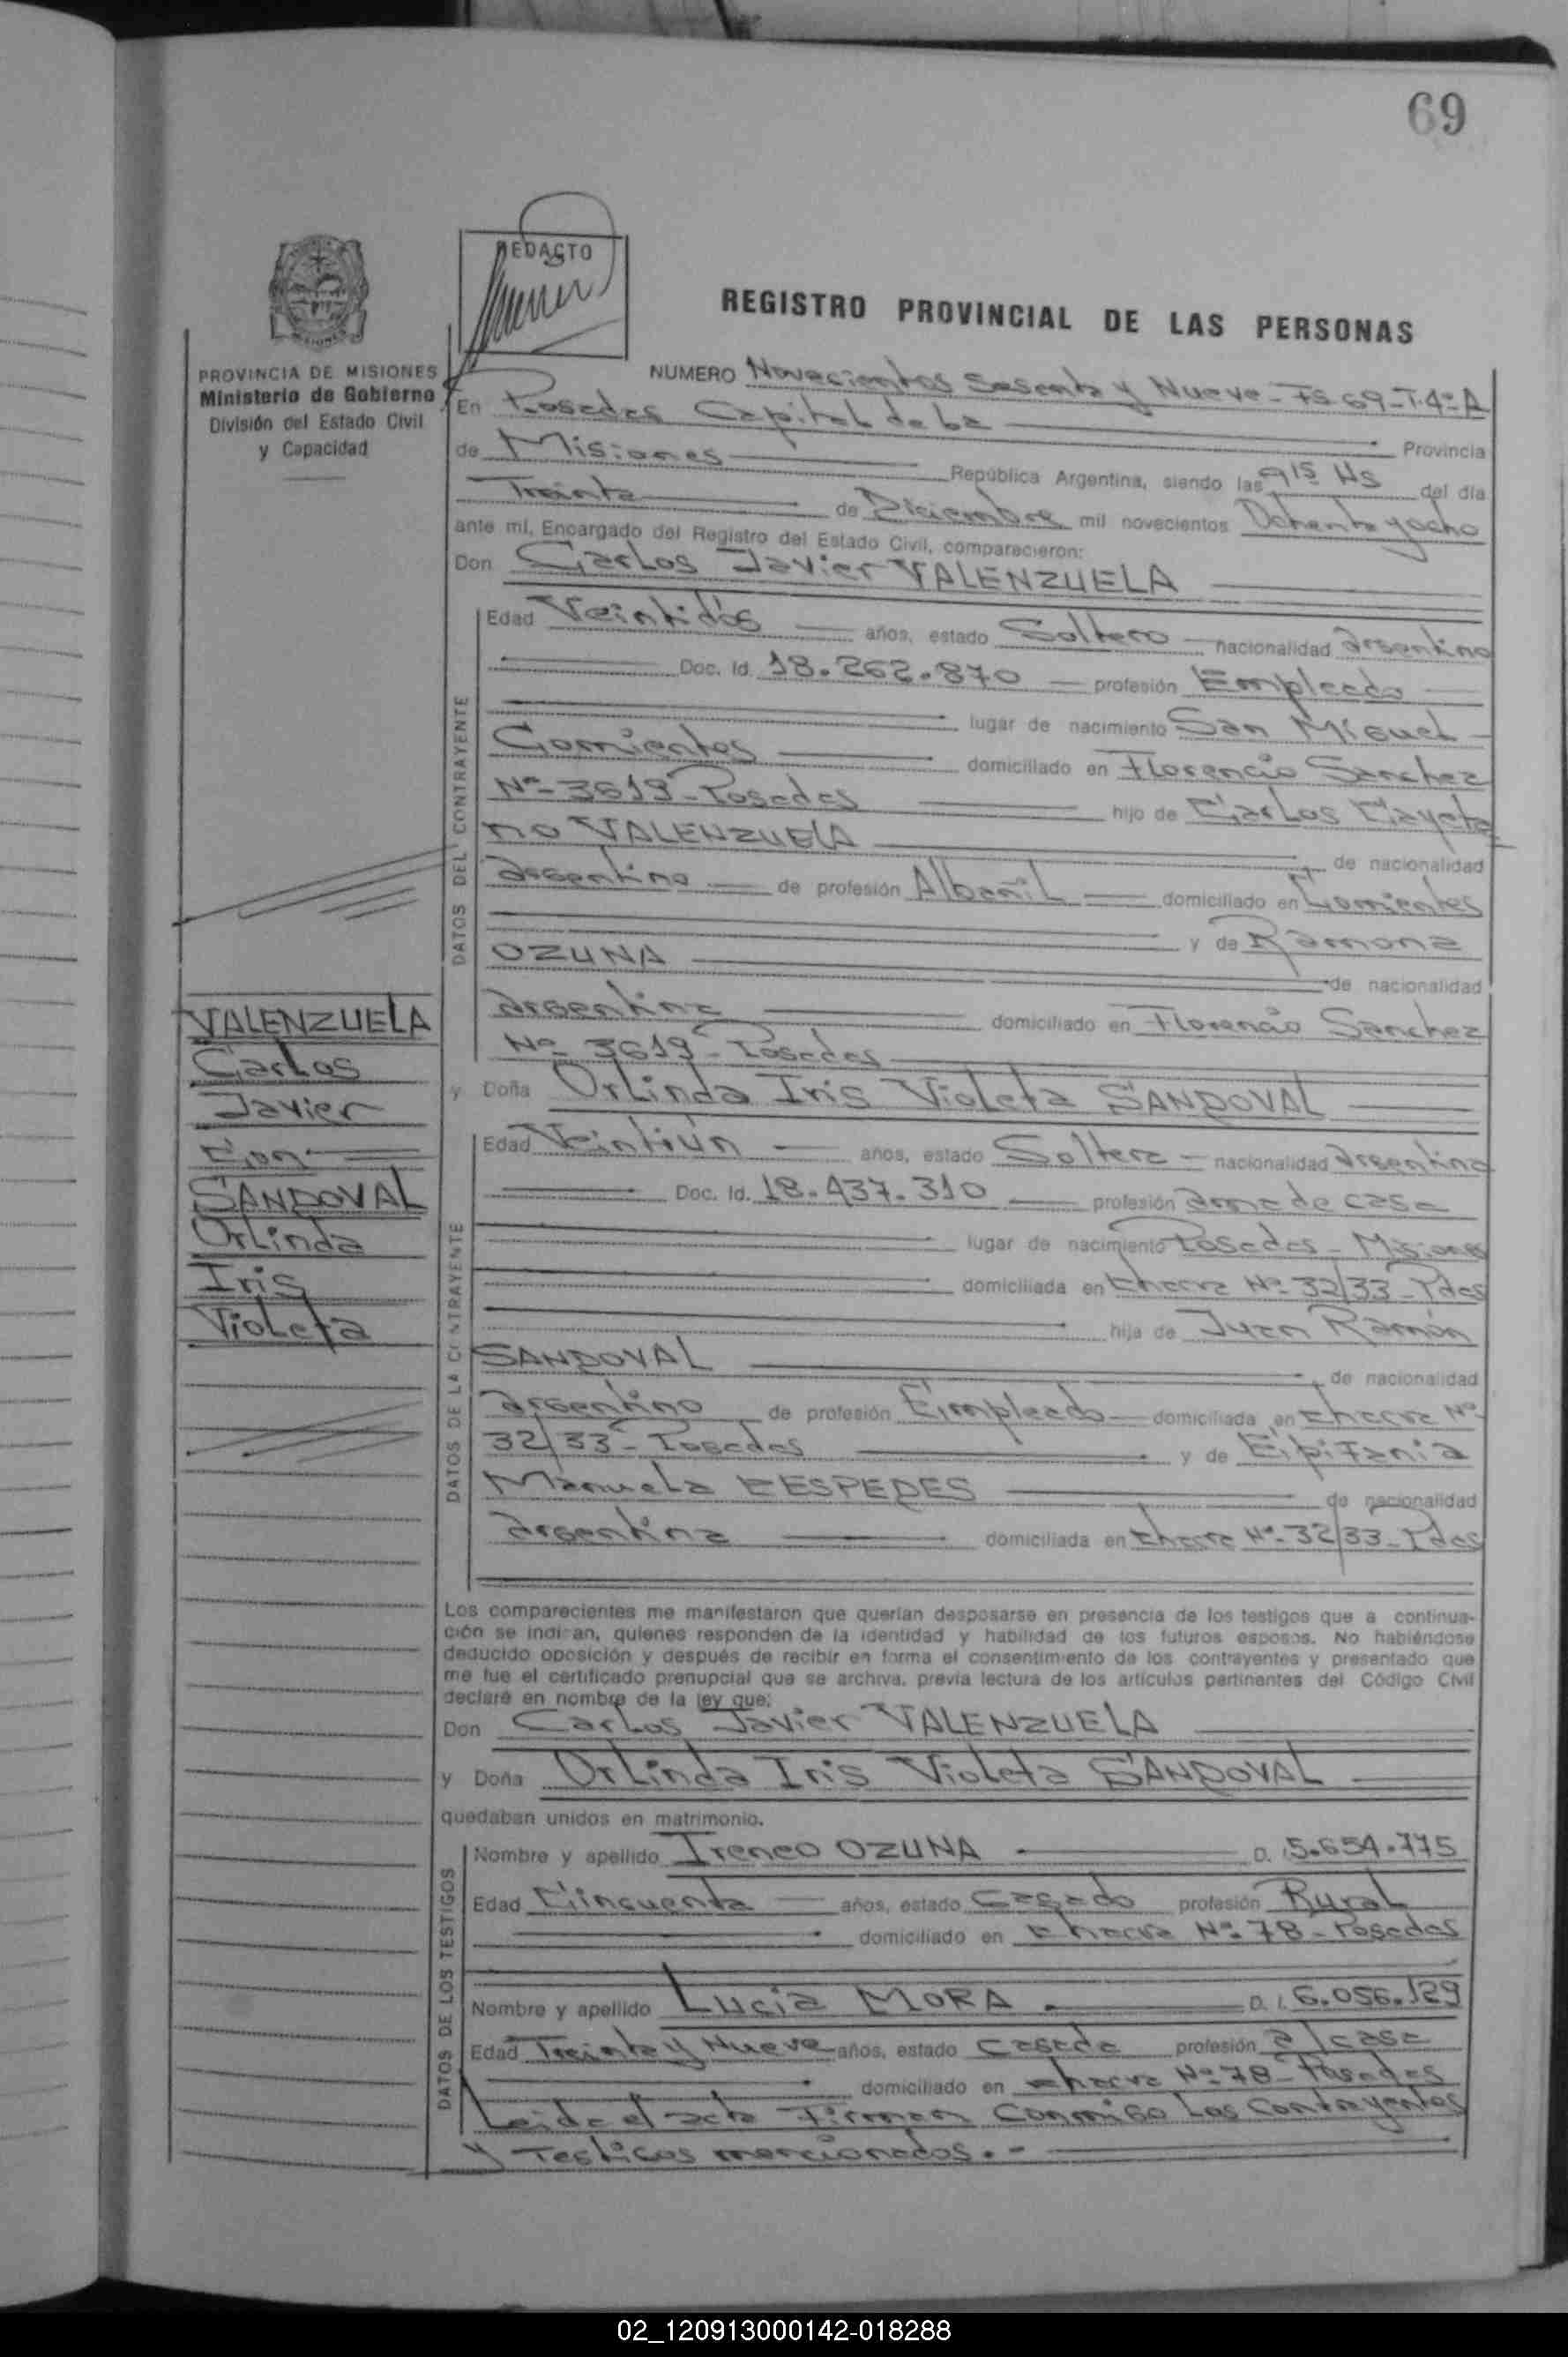 69
REDACTO
REGISTRO PROVINCIAL DE LAS PERSONAS
PROVINCIA DE MISIONES
Ministerio de Gobierno
División del Estado Civil
y Capacidad
NUMERO Novecientos Sesenta y Nueve - Fs 69 - T. 4º A
En Posadas Capital de la Provincia
de Misiones República Argentina, siendo las 9 15 Hs del día
Treinta de Diciembre mil novecientos Ochenta y ocho
ante mí, Encargado del Registro del Estado Civil, comparecieron:
Don Carlos Javier VALENZUELA
DATOS DEL CONTRAYENTE
Edad Veintidós años, estado Soltero nacionalidad argentino
Doc. Id. 18.262.870 profesión Empleado
lugar de nacimiento San Miguel
Corrientes domiciliado en Florencio Sanchez
Nº 3619 - Posadas hijo de Carlos Cayeta
no VALENZUELA de nacionalidad
argentino de profesión Albañil domiciliado en Corrientes
y de Ramona
OZUNA de nacionalidad
argentina domiciliado en Florencio Sanchez
Nº 3619 - Posadas
y Doña Orlinda Iris Violeta SANDOVAL
DATOS DE LA CONTRAYENTE
Edad Veintiún años, estado Soltera nacionalidad argentina
Doc. Id. 18.437.310 profesión ama de casa
lugar de nacimiento Posadas - Misiones
domiciliada en Chacra Nº 32/33 - Pdas
hija de Juan Ramón
SANDOVAL de nacionalidad
argentino de profesión Empleado domiciliada en Chacra Nº
32/33 - Posadas y de Epifania
Manuela CESPEDES de nacionalidad
argentina domiciliada en Chacra Nº 32/33 - Pdas
VALENZUELA
Carlos
Javier
Con
SANDOVAL
Orlinda
Iris
Violeta
Los comparecientes me manifestaron que querían desposarse en presencia de los testigos que a continua-
ción se indican, quienes responden de la identidad y habilidad de los futuros esposos. No habiéndose
deducido oposición y después de recibir en forma el consentimiento de los contrayentes y presentado que
me fue el certificado prenupcial que se archiva, previa lectura de los artículos pertinentes del Código Civil
declaré en nombre de la ley que:
Don Carlos Javier VALENZUELA
y Doña Orlinda Iris Violeta SANDOVAL
quedaban unidos en matrimonio.
DATOS DE LOS TESTIGOS
Nombre y apellido Ireneo OZUNA D. I. 5.654.775
Edad Cincuenta años, estado Casado profesión Rural
domiciliado en Chacra Nº 78 - Posadas
Nombre y apellido Lucia MORA D. I. 6.056.129
Edad Treinta y Nueve años, estado Casada profesión a/casa
domiciliado en Chacra Nº 78 - Posadas
Leida el acta Firman Conmigo Los Contrayentes
y Testigos mencionados.-
02_120913000142-018288